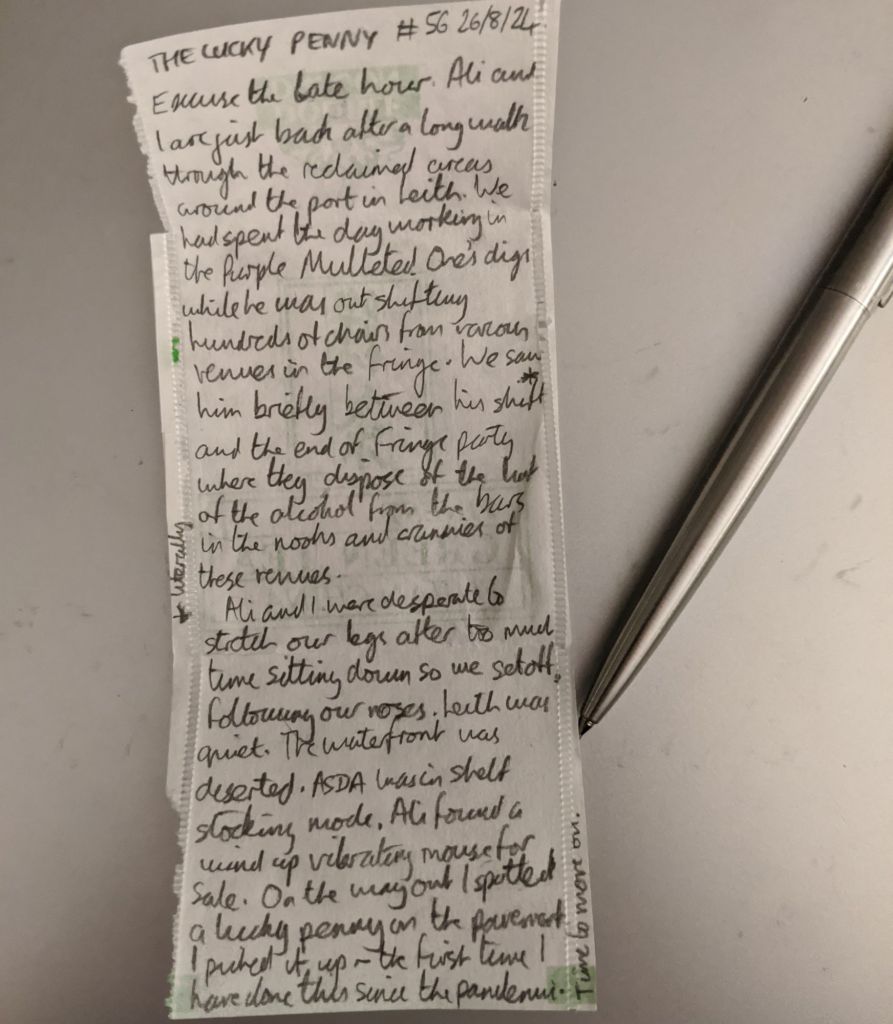 THE LUCKY PENNY #56 26/8/24
Excuse the late hour. Ali and
I are just back after a long walk
through the reclaimed areas
around the port in Leith. We
had spent the day working in
the Purple Mulleted One's digs
while he was out shifting
hundreds of chairs from various
venues in the fringe. We saw
him briefly between his shift*
and the end of Fringe party
where they dispose of the last
of the alcohol from the bars
in the nooks and crannies of
these venues.
Ali and I were desperate to
stretch our legs after too much
time sitting down so we set off,
following our noses. Leith was
quiet. The waterfront was
deserted. ASDA was in shelf
stocking mode. Ali found a
wind up vibrating mouse for
sale. On the way out I spotted
a lucky penny on the pavement.
I picked it up - the first time I
have done this since the pandemic.
Time to move on.
* literally